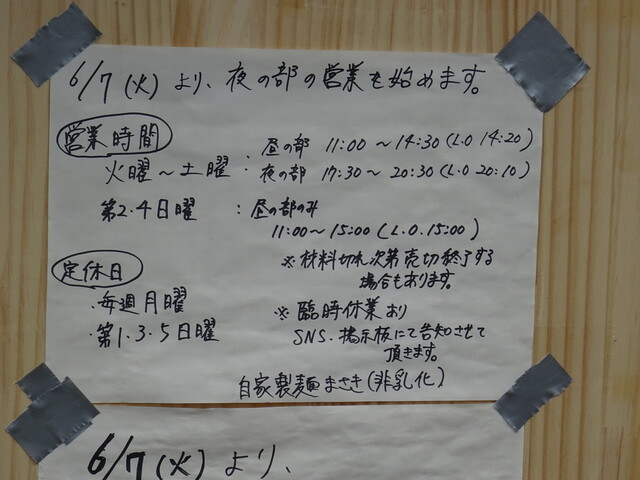 6/7(火)より、夜の部の営業を始めます。
営業時間
火曜～土曜:昼の部 11:00～14:30(L.O 14:20)
夜の部 17:30～20:30(L.O 20:10)
第2.4日曜 :昼の部のみ
11:00～15:00(L.O.15:00)
※材料切れ次第売切終了する
場合もあります。
定休日
・毎週月曜
・第1.3.5日曜
※臨時休業あり
SNS.掲示板にて告知させて
頂きます。
自家製麺まさき(非乳化)
6/7(火)より、